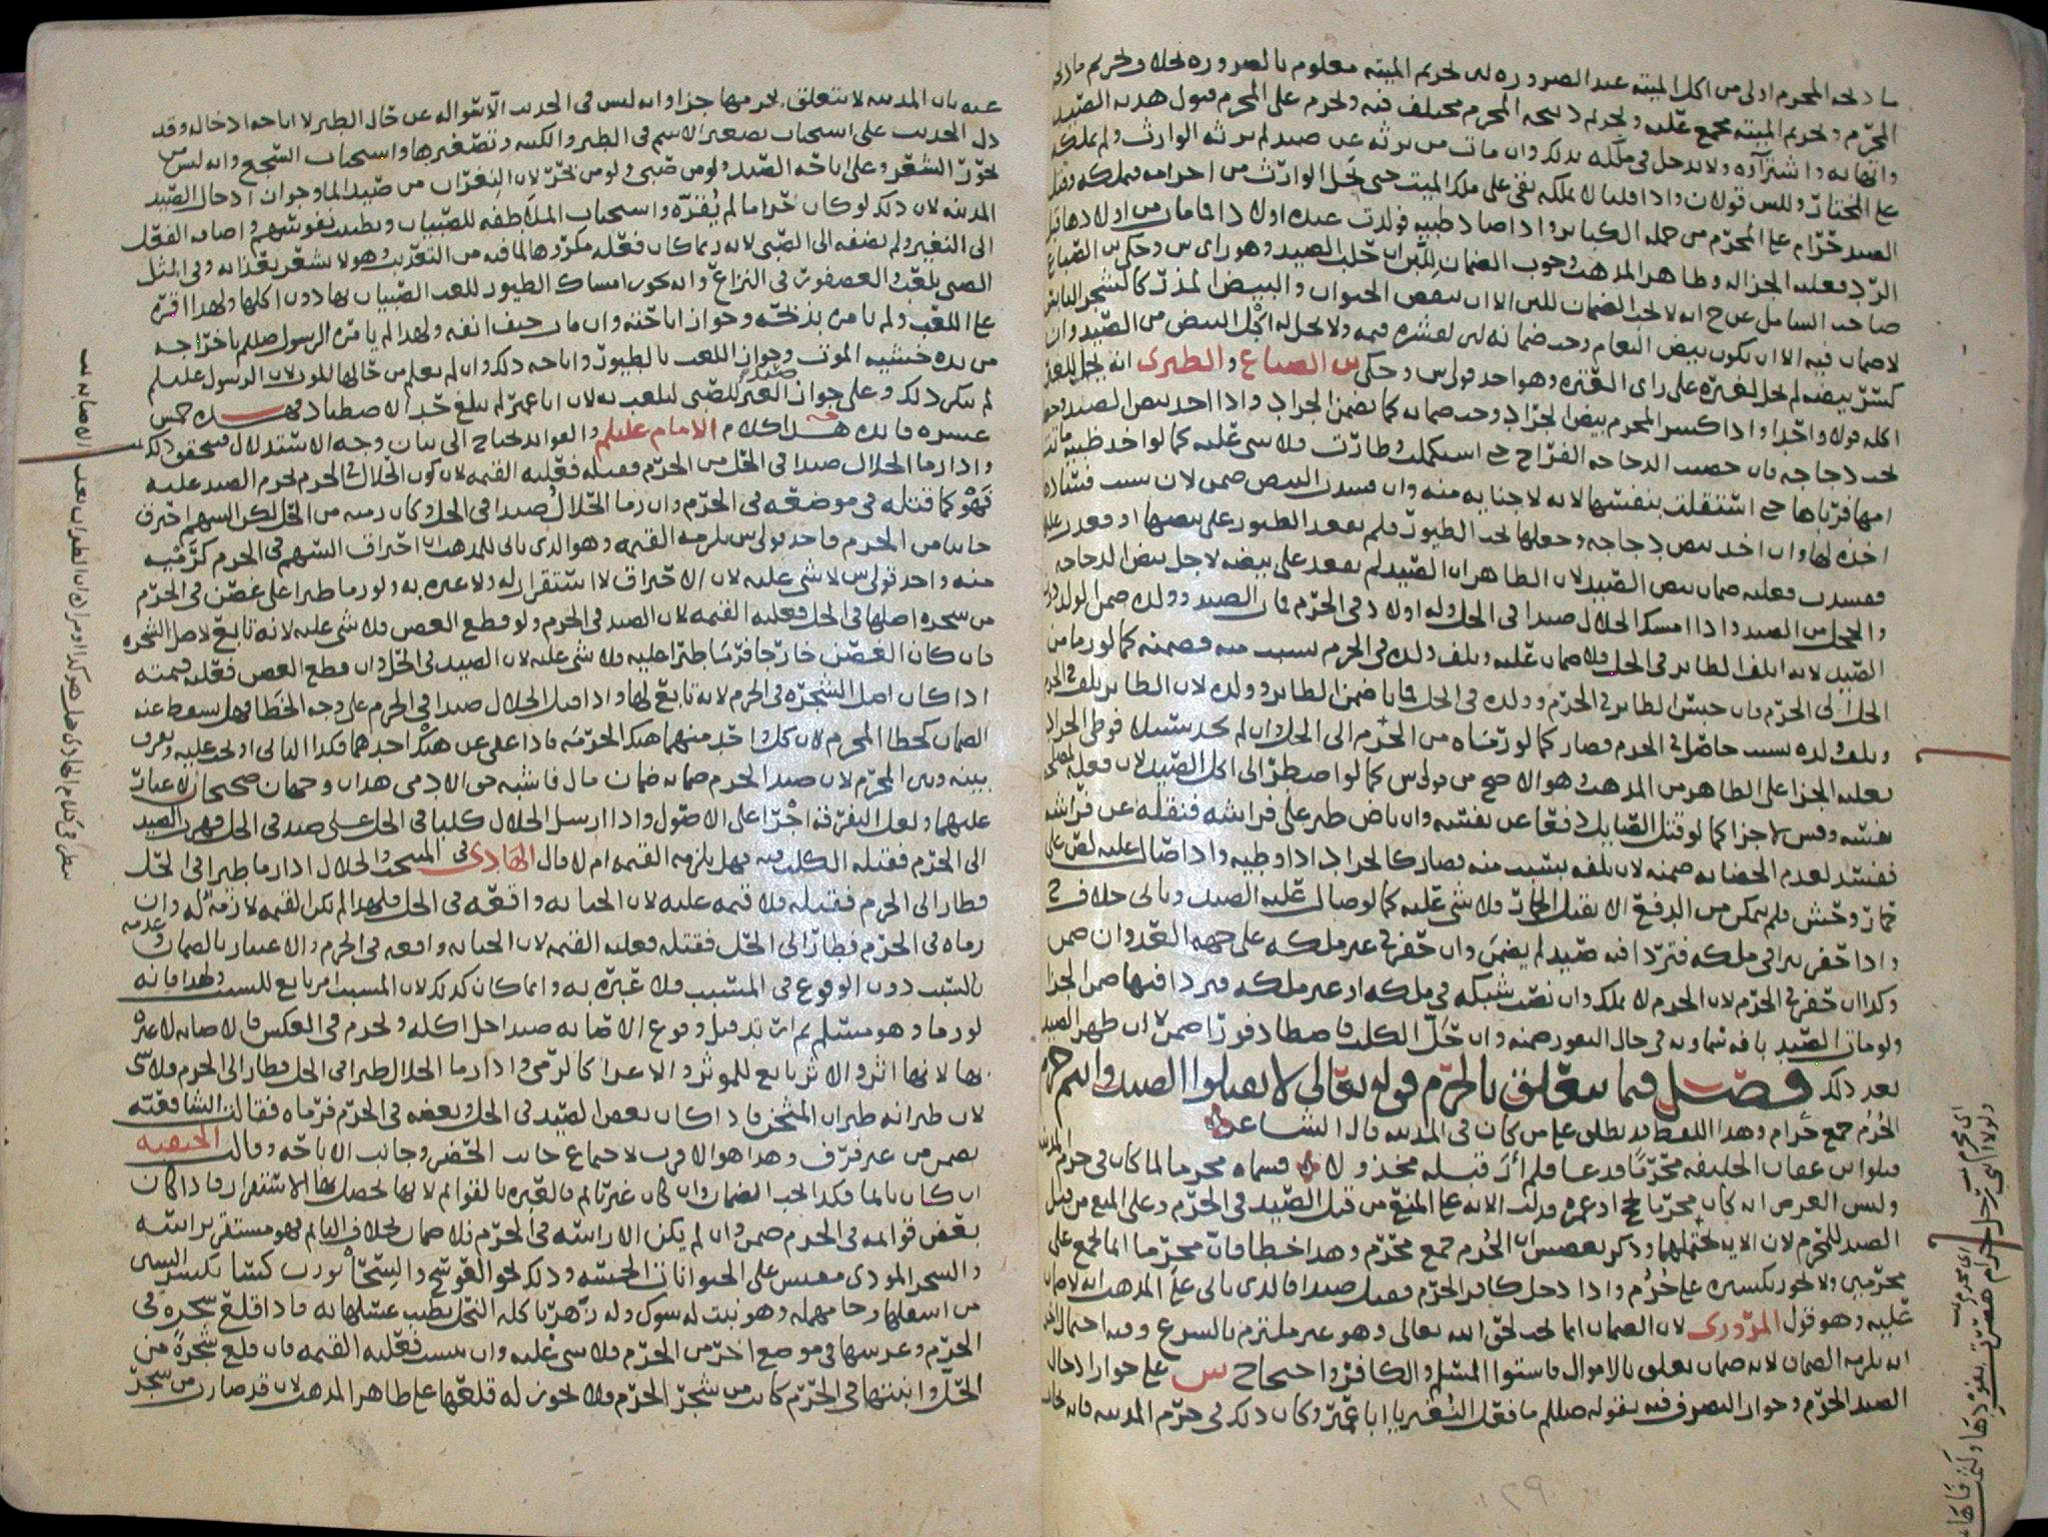 ما ذبحه المحرم اولى من اكل الميته عند الضرورة لان تحريم الميته معلوم بالضرورة بخلاف تحريم ما ذبحه
المحرم وتحريم الميته مجمع عليه وتحريم ذبيحه المحرم مختلف فيه ويحرم على المحرم قبول هديه الصيد
واتهابه واشتراؤه ولا يدخل في ملكه بذلك وان مات من يرثه عن صيد لم يرثه الوارث ولم يملكه
على المختار وللش قولان واذا قلنا لا يملكه بقي على ملك الميت حتى يحل الوارث من احرامه فيملكه وقتل
الصيد حرام على المحرم من جمله الكبائر واذا صاد ظبيه فولدت عنده اولادا فما مات من اولادها قبل
الرد فعليه الجزا له وظاهر المذهب وجوب الضمان للبن ان حلب الصيد وهو راي س وحكى س الصباغ
صاحب الشامل عن ح انه لا يجب الضمان للبن الا ان ينقص الحيوان والبيض المذر كالشجر اليابس
لا ضمان فيه الا ان يكون بيض النعام وجب ضمانه لان لقشره قيمه ولا يحل له اكل البيض من الصيد وان
كسر بيضه لم يحل لغيره على راي العتره وهو احد قولي س وحكى س الصباغ والطبرى انه يحل للغير
اكله قولا واحدا واذا كسر المحرم بيض الجراد وجب ضمانه كما يضمن الجراد واذا اخذ بيض الصيد وحضنه
تحت دجاجه فان حضنت الدجاجه الفراخ حتى استكملت وطارت فلا شي عليه كما لو اخذ ظبيه ماتت
امها فرباها حتى استقلت بنفسها لانه لا جنايه منه وان فسدت البيض ضمن لان سبب فساده
اخذه لها وان اخذ بيض دجاجه وجعلها تحت الطيور فلم تقعد الطيور على بيضها او قعدت عليه
ففسدت فعليه ضمان بيض الصيد لان الظاهر ان الصيد لم يقعد على بيضه لاجل بيض الدجاجه
والحجل من الصيد واذا امسك الحلال صيدا في الحل وله اولاد في الحرم فمات الصيد وولده ضمن الولد دون
الصيد لانه اتلف الطاير في الحل فلا ضمان عليه وتلف ولده في الحرم بسبب منه فضمنه كما لو رما من
الحل الى الحرم فان حبس الطاير في الحرم وولده في الحل فماتا ضمن الطاير وولده لان الطاير تلف في الحرم
وتلف ولده بسبب حاصل في الحرم فصار كما لو رماه من الحرم الى الحل وان لم يجد سبيلا فوطى الجراد
فعليه الجزا على الظاهر من المذهب وهو الاصح من قولي س كما لو اضطر الى اكل الصيد لان فعله لمصلحه
نفسه وقيس لا جزا كما لو قتل الصايل دفعا عن نفسه وان باض طير على فراشه فنقله عن فراشه
ففسد لعدم الحضانه ضمنه لان تلفه بسبب منه فصار كالجراد اذا وطيه واذا صال عليه لص على
حمار وحش فلم يمكن من الدفع الا بقتل الحمار فلا شي عليه كما لو صال عليه الصيد وياتي خلاف ح
واذا حفر بيرا في ملكه فتردا فيه صيد لم يضمن وان حفر في غير ملكه على جهه العدوان ضمن
وكذا ان حفر في الحرم لان الحرم لا يملك وان نصب شبكه في ملكه او غير ملكه فتردا فيها ضمن الجزا
ولو مات الصيد بافه سماويه في حال النفور ضمنه وان حل الكلب فاصطاد فورا ضمن لا ان ظهر الصيد
بعد ذلك فصل فيما يتعلق بالحرم قوله تعالى لا تقتلوا الصيد وانتم حرم
الحرم جمع حرام وهذا اللفظ قد يطلق على من كان في المدينه قال الشاعر
قتلوا س عفان الخليفه محرما فدعا فلم أر قبله مخذولا فسماه محرما لما كان في حرم المدينه
وليس الغرض انه كان محرما بحج او عمره فدلت الايه على المنع من قتل الصيد في الحرم وعلى المنع من قتل
الصيد للمحرم لان الايه تحتملهما وذكر بعضهم ان الحرم جمع محرم وهذا خطا فان محرما انما يجمع على
محرمين ولا يجوز تكسيره على حرم واذا دخل كافر الحرم فقتل صيدا فالذي ياتي على المذهب انه لا ضمان
عليه وهو قول المروزى لان الضمان انما يجب لحق الله تعالى وهو غير ملتزم بالشرع وفيه احتمال اخر
انه يلزمه الضمان لانه ضمان يتعلق بالاموال فاستوا المسلم والكافر واحتجاح س على جواز ادخال
الصيد الحرم وجواز التصرف فيه بقوله صللم ما فعل النغير يا ابا عمير وكان ذلك في حرم المدينه فانه يجاب
عنه بان المدينه لا يتعلق بحرمها جزا وانه ليس في الحديث الا سواله عن حال الطير لا اباحه ادخاله وقد
دل الحديث على استحباب تصغير الاسم في الطير والكنيه وتصغيرها واستحباب السجع وانه ليس من
تحوز الشعر وعلى اباحه الصيد ولو من صبي ولو من تحرز لان النغران من صيد الما وجواز ادخال الصيد
المدينه لان ذلك لو كان حراما لم يقره واستحباب الملاطفه للصبيان وتطييب نفوسهم واضافه الفعل
الى النغير ولم يضفه الى الصبي لانه ربما كان فعله مكررها لما فيه من التعذيب وهو لا يشعر بعذابه وفي المثل
الصبي يلعب والعصفور في النزاع وانه يجوز امساك الطيور للعب الصبيان بها دون اكلها ولهذا اقره
على اللعب ولم يامره بذبحه وجواز اباحته وان مات حتف انفه ولهذا لم يامره الرسول صللم باخراجه
من يده خشيه الموت وجواز اللعب بالطيور واباحه ذلك وان لم يعلم من حالها للموت لان الرسول عليلم
لم ينكر ذلك وعلى جواز صيد الغير للصبي ليلعب به لان ابا عمير لم يبلغ حد الاصطياد فهذه خمس
عشره فايده هذا كلام الامام عليلم والفوايد تحتاج الى بيان وجه الاستدلال فتحقق ذلك
واذا رما الحلال صيدا في الحل من الحرم فقتله فعليه القيمه لان كون الحلال في الحرم يحرم الصيد عليه
فهو كما قتله في موضعه في الحرم وان رما الحلال صيدا في الحل وكان رميه من الحل لكن السهم اخترق
جانبا من الحرم فاحد قولي س يلزمه القيمه وهو الذي ياتي للمذهب ان اختراق السهم في الحرم كرميه
منه واحد قولي س لا شي عليه لان الاختراق لا استقرار له ولا عبره به ولو رما طيرا على غصن في الحرم
من شجره اصلها في الحل فعليه القيمه لان الصيد في الحرم ولو قطع الغصن فلا شي عليه لانه تابع لاصل الشجره
فان كان الغصن خارجا فرما طيرا عليه فلا شي عليه لان الصيد في الحل وان قطع الغصن فعليه قيمته
اذا كان اصل الشجره في الحرم لانه تابع لها واذا قتل الحلال صيدا في الحرم على وجه الخطا فهل يسقط عنه
الضمان كخطا المحرم لان كل واحد منهما هتك الحرمه فاذا عفي عن هتك احدهما فكذا الثاني او يجب عليه ويفرق
بينه وبين المحرم لان صيد الحرم ضمانه ضمان مال فاشبه حق الادمي هذان وجهان صحيحان لا غبار
عليهما ولعل التفرقه اجرا على الاصول واذا ارسل الحلال كلبا في الحل على صيد في الحل فهرب الصيد
الى الحرم فقتله الكلب فيه فهل يلزمه القيمه ام لا قال الهادى في المنتخب والحلال اذا رما طيرا في الحل
فطار الى الحرم فقتله فلا قيمه عليه لان الجنايه واقعه في الحل فلهذا لم تكن القيمه لازمه له وان
رماه في الحرم فطار الى الحل فقتله فعليه القيمه لان الجنايه واقعه في الحرم والاعتبار بالضمان وعدمه
بالسبب دون الوقوع في المسبب فلا عبره به وانما كان كذلك لان المسبب امر تابع للسبب ولهذا فانه
لو رما وهو مسلم ثم ارتد قبل وقوع الاصابه صيدا حل اكله ويحرم في العكس فالاصابه لا عبره
بها لانها اثر والاثر تابع للموثر والاغرا كالرمي واذا رما الحلال طيرا في الحل فطار الى الحرم فلا شي
لان طيرانه طيران المثخن فاذا كان بعض الصيد في الحل وبعضه في الحرم فرماه فقالت الشافعيه
يضمن من غير فرق وهذا هو الاقرب لاجتماع جانب الحظر وجانب الاباحه وقالت الحنفيه
ان كان نايما فكذا يجب الضمان وان كان غير نايم فالعبره بالقوايم لانها يحصل بها الاستقرار فاذا كان
بعض قوايمه في الحرم ضمن وان لم يكن الا راسه في الحرم فلا ضمان بخلاف النايم فهو مستقر براسه
والشجر الموذي مقيس على الحيوانات الخبيثه وذلك نحو العوسج والسحا
من اسفلها وحا مهمله وهو نبت له شوك وله زهر تاكله النحل يطيب عسلها به فاذا قلع شجره في
الحرم وغرسها في موضع اخر من الحرم فلا شي عليه وان يبست فعليه القيمه فان قلع شجره من
الحل وانبتها في الحرم كانت من شجر الحرم فلا يجوز له قلعها على ظاهر المذهب لان قد صارت من شجر